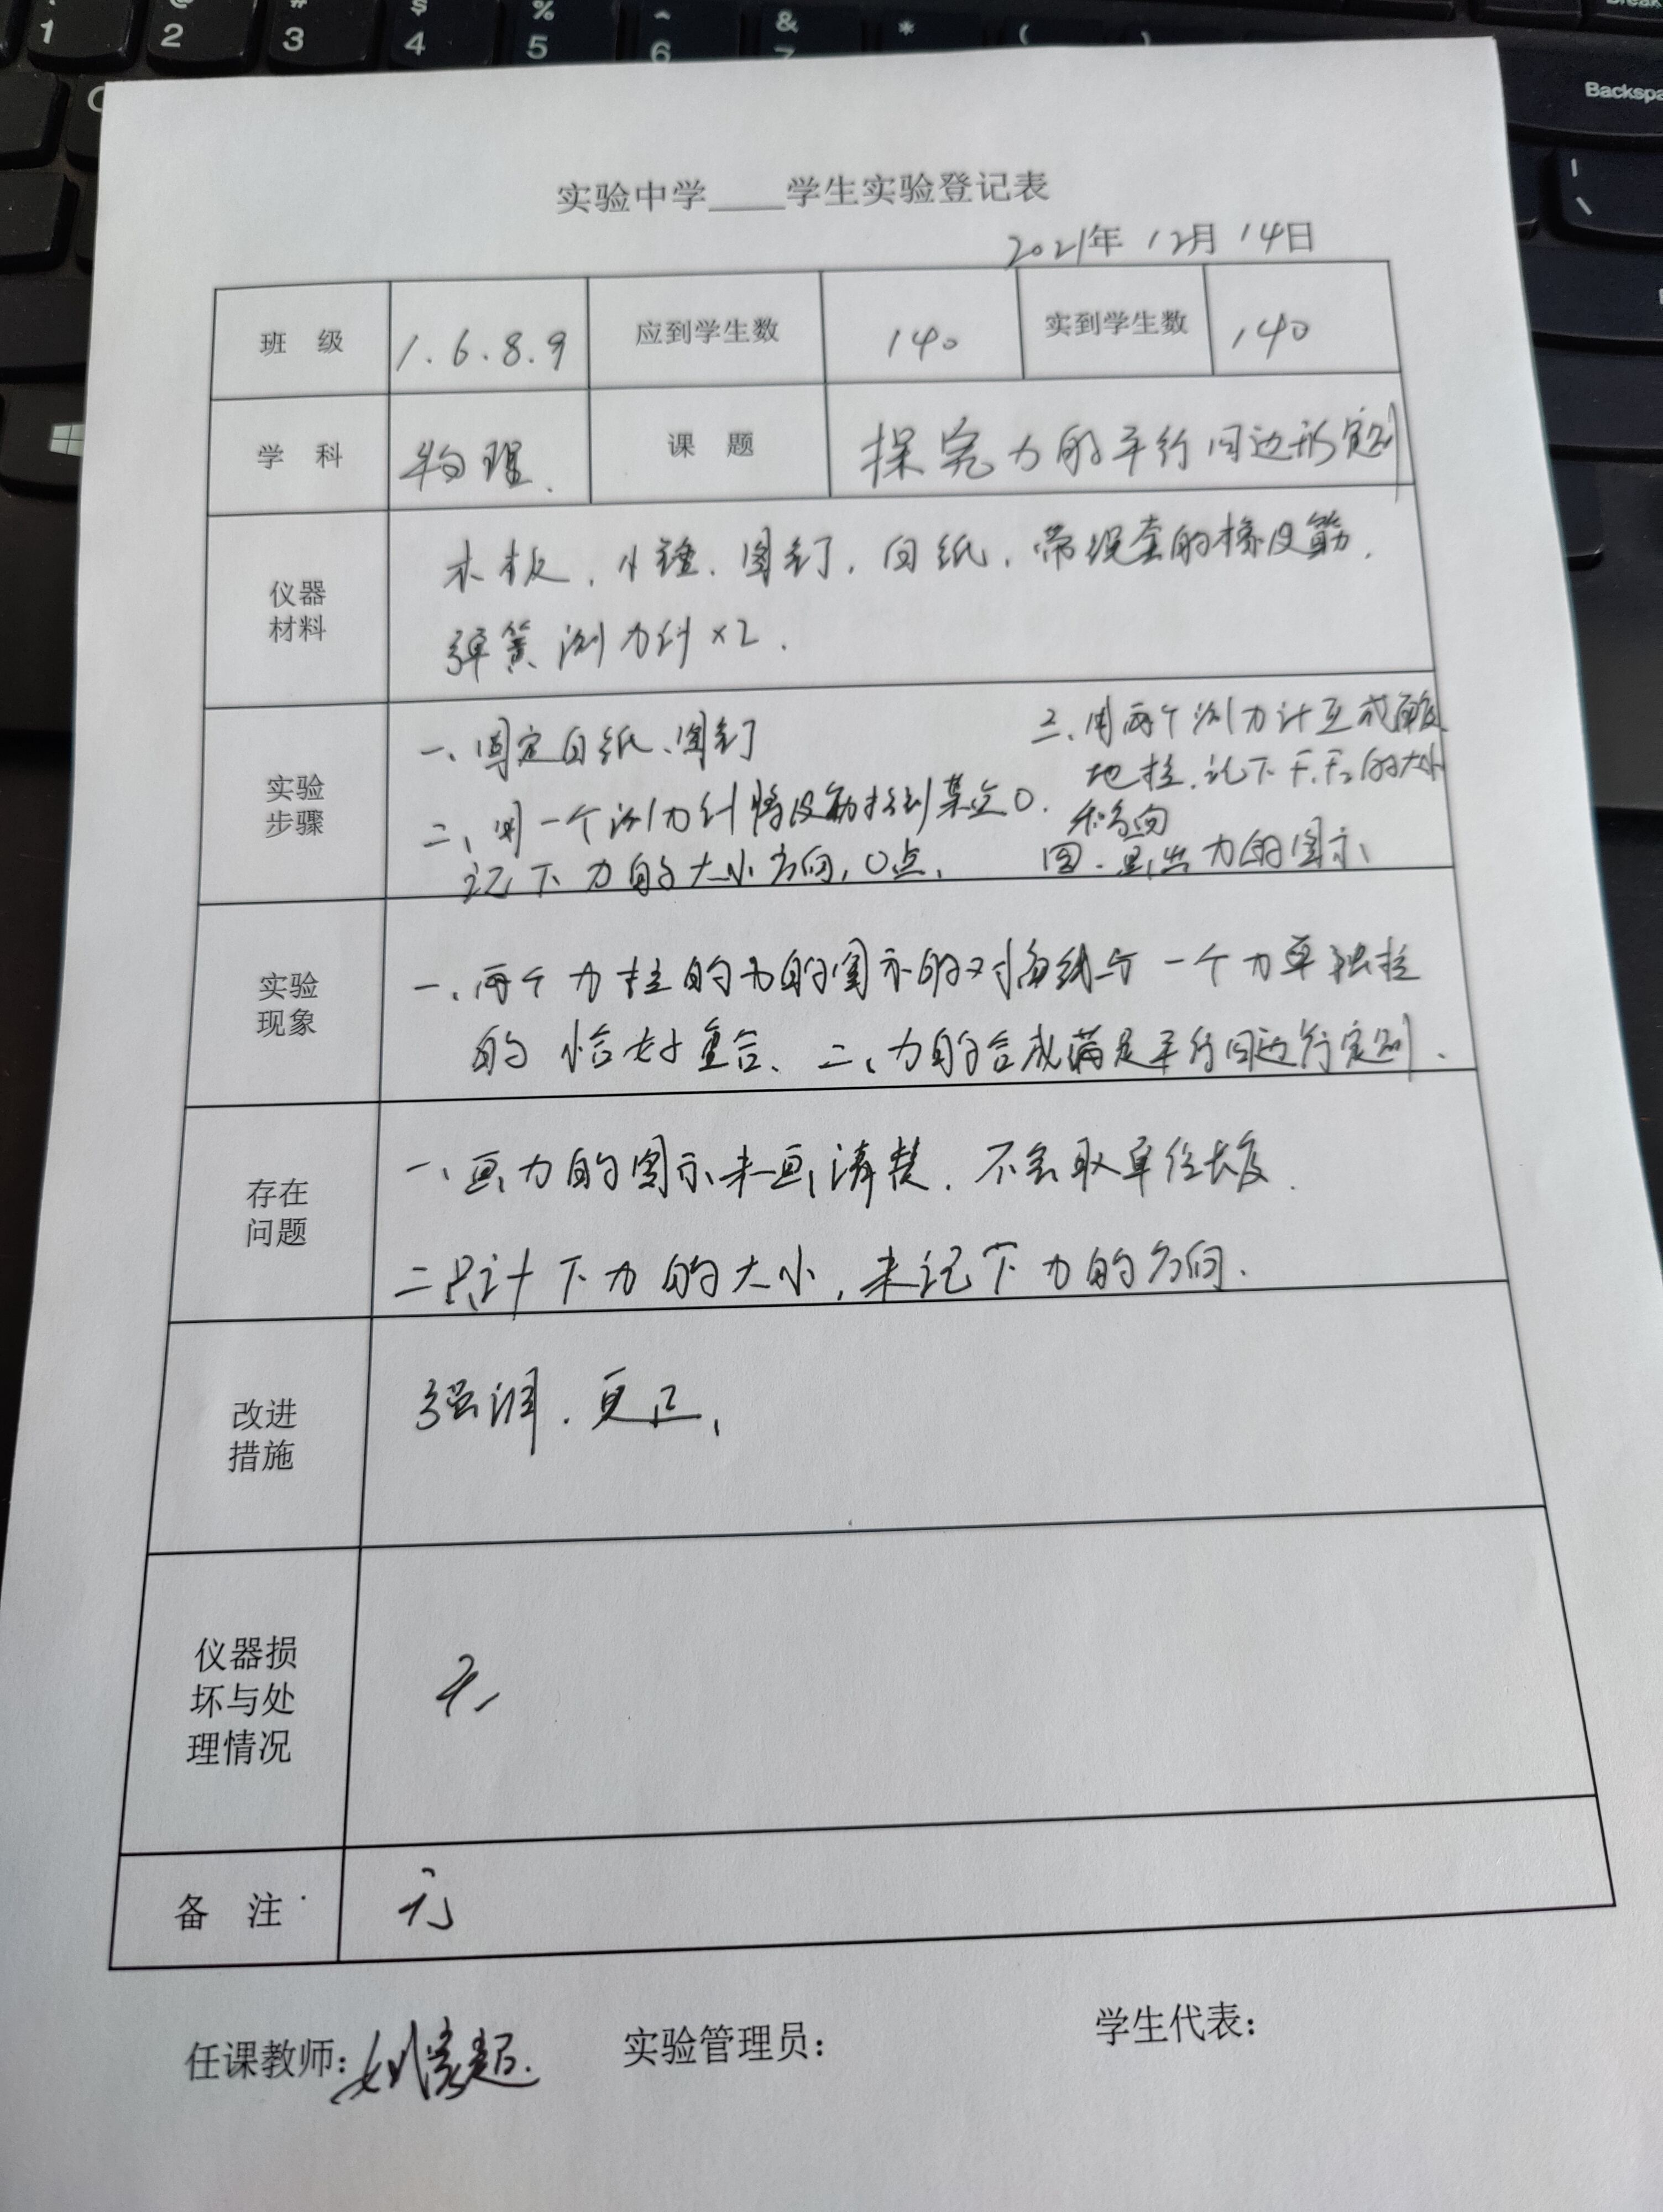 1 2 3 $ 4 % 5 ^ 6 & 7 * (
Backspa
实验中学____学生实验登记表
2021年 12月 14日
班 级 1.6.8.9 应到学生数 140 实到学生数 140
学 科 物理. 课 题 探究力的平行四边形定则
仪器
材料
木板、小锤、图钉、白纸、带绳套的橡皮筋、
弹簧测力计×2.
实验
步骤
一、固定白纸、图钉
二、用一个测力计将皮筋拉到某点O.
记下力的大小方向,O点、
三、用两个测力计互成角度
地拉、记下F₁F₂的大小
和方向
四、画出力的图示、
实验
现象
一、两个力拉的力的图示的对角线与一个力单独拉
的恰好重合、二、力的合成满足平行四边行定则.
存在
问题
一、画力的图示未画清楚、不会取单位长度.
二只计下力的大小,未记下力的方向.
改进
措施
强调、更正、
仪器损
坏与处
理情况
无
备 注
无
任课教师: 实验管理员: 学生代表: